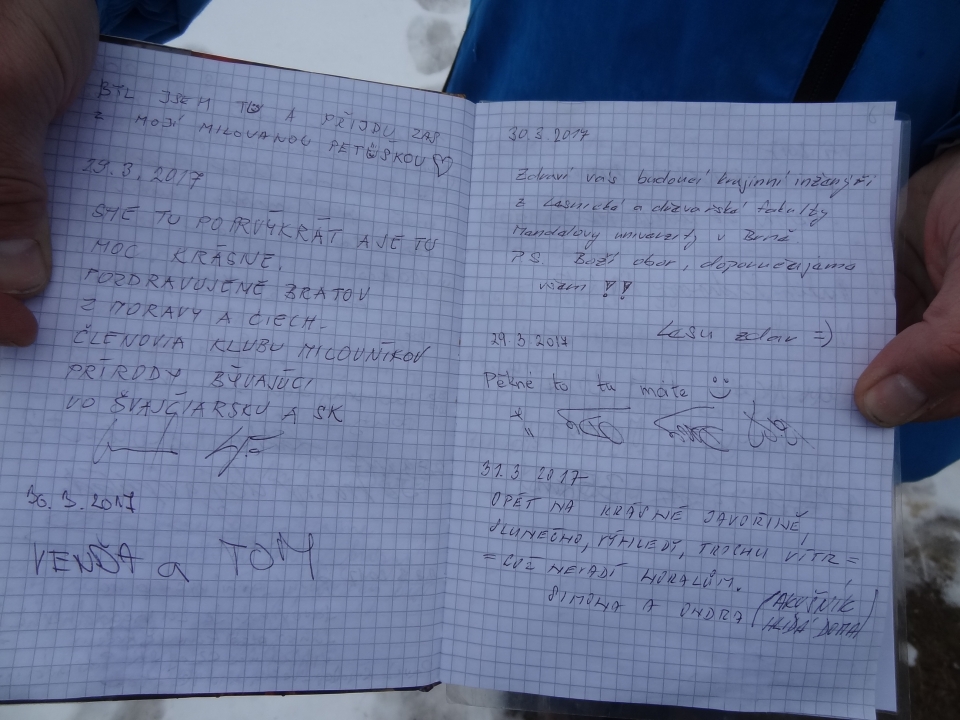 BYL JSEM TU A PŘIJDU ZAS
Z MOJÍ MILOVANOU PETÍSKOU
29.3.2017
SME TU PO PRVÝKRÁT A JE TU
MOC KRÁSNE.
POZDRAVUJEME BRATOV
Z MORAVY A ČIECH.
ČLENOVIA KLUBU MILOVNÍKOV
PŘÍRODY BÝVAJÚCI
VO ŠVAJČIARSKU A SK
30.3.2017
VENĎA a TOM
30.3.2017
Zdraví vás budoucí krajinní inženýři
z Lesnické a dřevařské fakulty
Mendelovy univerzity v Brně
P.S. Boží obor, doporučujeme
všem !!
Lesu zdar =)
29.3.2017
Pěkné to tu máte
31.3.2017-
OPĚT NA KRÁSNÉ JAVOŘINĚ,
SLUNEČNO, VÝHLEDY, TROCHU VÍTR =
= COŽ NEVADÍ HORALŮM.
SIMONA A ONDRA
HLÍDÁ DOMA